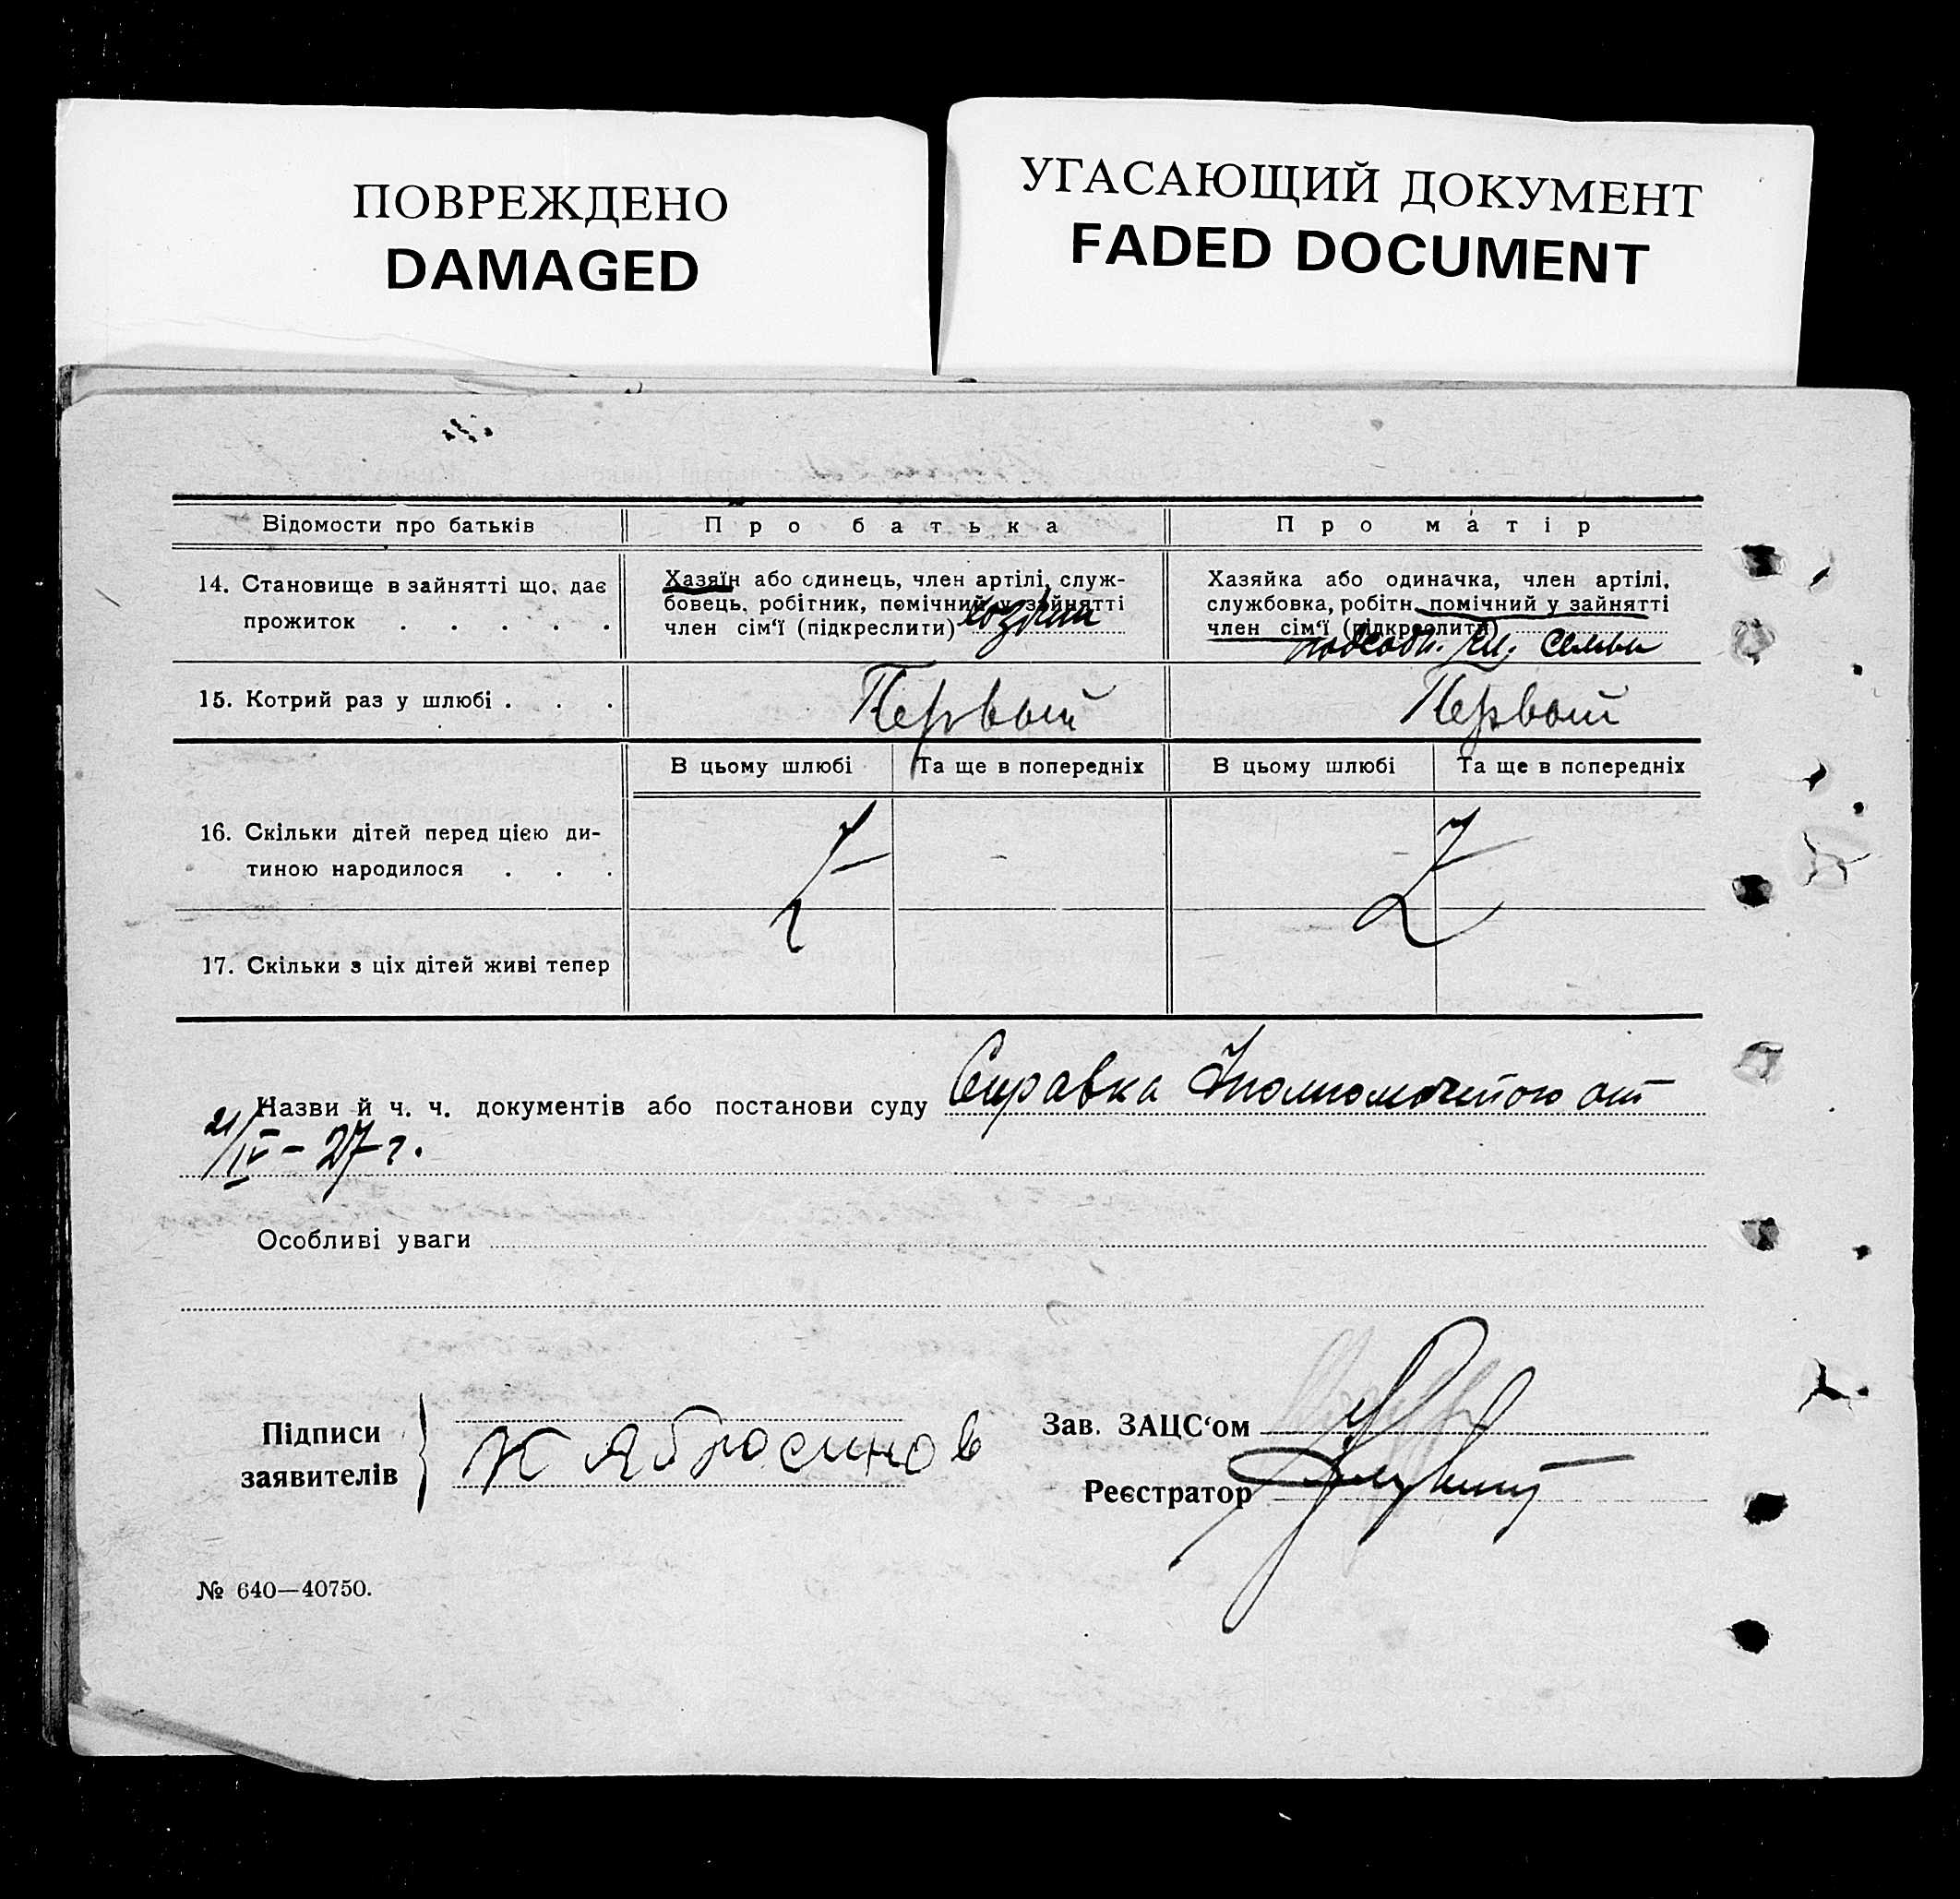 ПОВРЕЖДЕНО
DAMAGED
УГАСАЮЩИЙ ДОКУМЕНТ
FADED DOCUMENT
Відомости про батьків
Про батька
Про матір
14. Становище в зайнятті що, дає
прожиток . . . . .
Хазяїн або одинець, член артілі, служ-
бовець, робітник, помічний у зайнятті
член сім'ї (підкреслити)
Хазяйка або одиначка, член артілі,
службовка, робітн. помічний у зайнятті
член сім'ї (підкреслити)
подсобн. чл. семьи
15. Котрий раз у шлюбі . . .
Первый
Первый
В цьому шлюбі
Та ще в попередніх
В цьому шлюбі
Та ще в попередніх
16. Скільки дітей перед цією ди-
тиною народилося . . .
17. Скільки з ціх дітей живі тепер
Назви й ч. ч. документів або постанови суду Справка от
21/IV – 27 г.
Особливі уваги
Підписи
заявителів
К Абросимов
Зав. ЗАЦС'ом
Реєстратор
№ 640—40750.